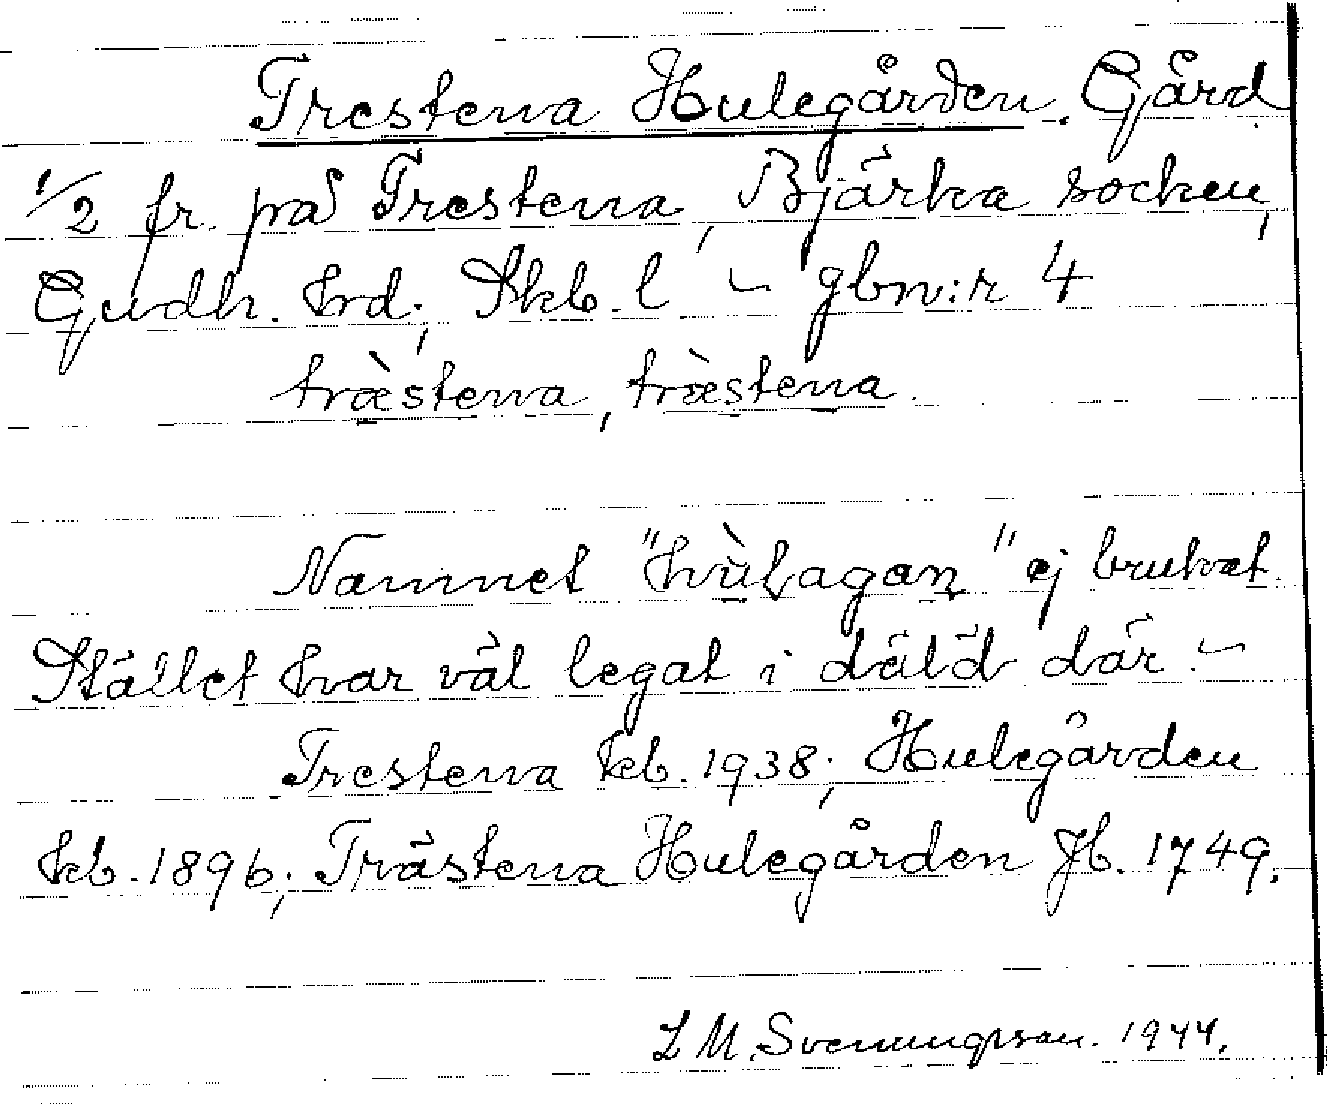 Trestena Hulegården. Gård
1/2 fr. på Trestena, Bjärka socken,
Gudh. hrd; Skb. l – gbn:r 4
træ̀stena, træ̀stena.
Namnet "hùlagan" ej brukat.
Stället har väl legat i däld där. –
Trestena kb. 1938; Hulegården
kb. 1896; Trästena Hulegården Jb. 1749.
L M. Svenungsson. 1944.